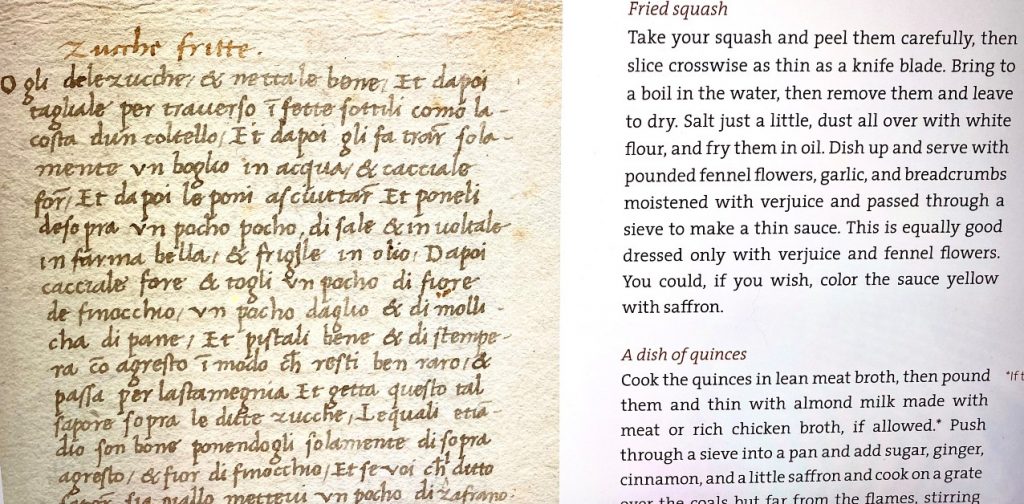 Zucche fritte.
Ogli dele zucche, & nettale bene, Et dapoi
tagliale per traverso ī fette sottili como la
costa dun coltello, Et dapoi gli fa trair sola-
mente vn boglio in acqua, & cacciale
for, Et dapoi le poni asciuttar Et poneli
desopra vn pocho pocho, di sale & involtale
in farina bella, & frigile in olio, Dapoi
cacciale fore & togli vn pocho di fiore
de finocchio, vn pocho daglio & di molli-
cha di pane, Et pistali bene & distempe-
ra cō agresto ī modo ch resti ben raro, &
passa per lastamegnia Et getta questo tal
sapore sopra le ditte zucche, Lequali etiā-
dio son bone ponendogli solamente di sopra
agresto, & fior di finocchio, Et se voi ch ditto
sapor sia giallo mettevi vn pocho di zafrano.
Fried squash
Take your squash and peel them carefully, then
slice crosswise as thin as a knife blade. Bring to
a boil in the water, then remove them and leave
to dry. Salt just a little, dust all over with white
flour, and fry them in oil. Dish up and serve with
pounded fennel flowers, garlic, and breadcrumbs
moistened with verjuice and passed through a
sieve to make a thin sauce. This is equally good
dressed only with verjuice and fennel flowers.
You could, if you wish, color the sauce yellow
with saffron.
A dish of quinces
Cook the quinces in lean meat broth, then pound
them and thin with almond milk made with
meat or rich chicken broth, if allowed.* Push
through a sieve into a pan and add sugar, ginger,
cinnamon, and a little saffron and cook on a grate
over the coals but far from the flames, stirring
*If t